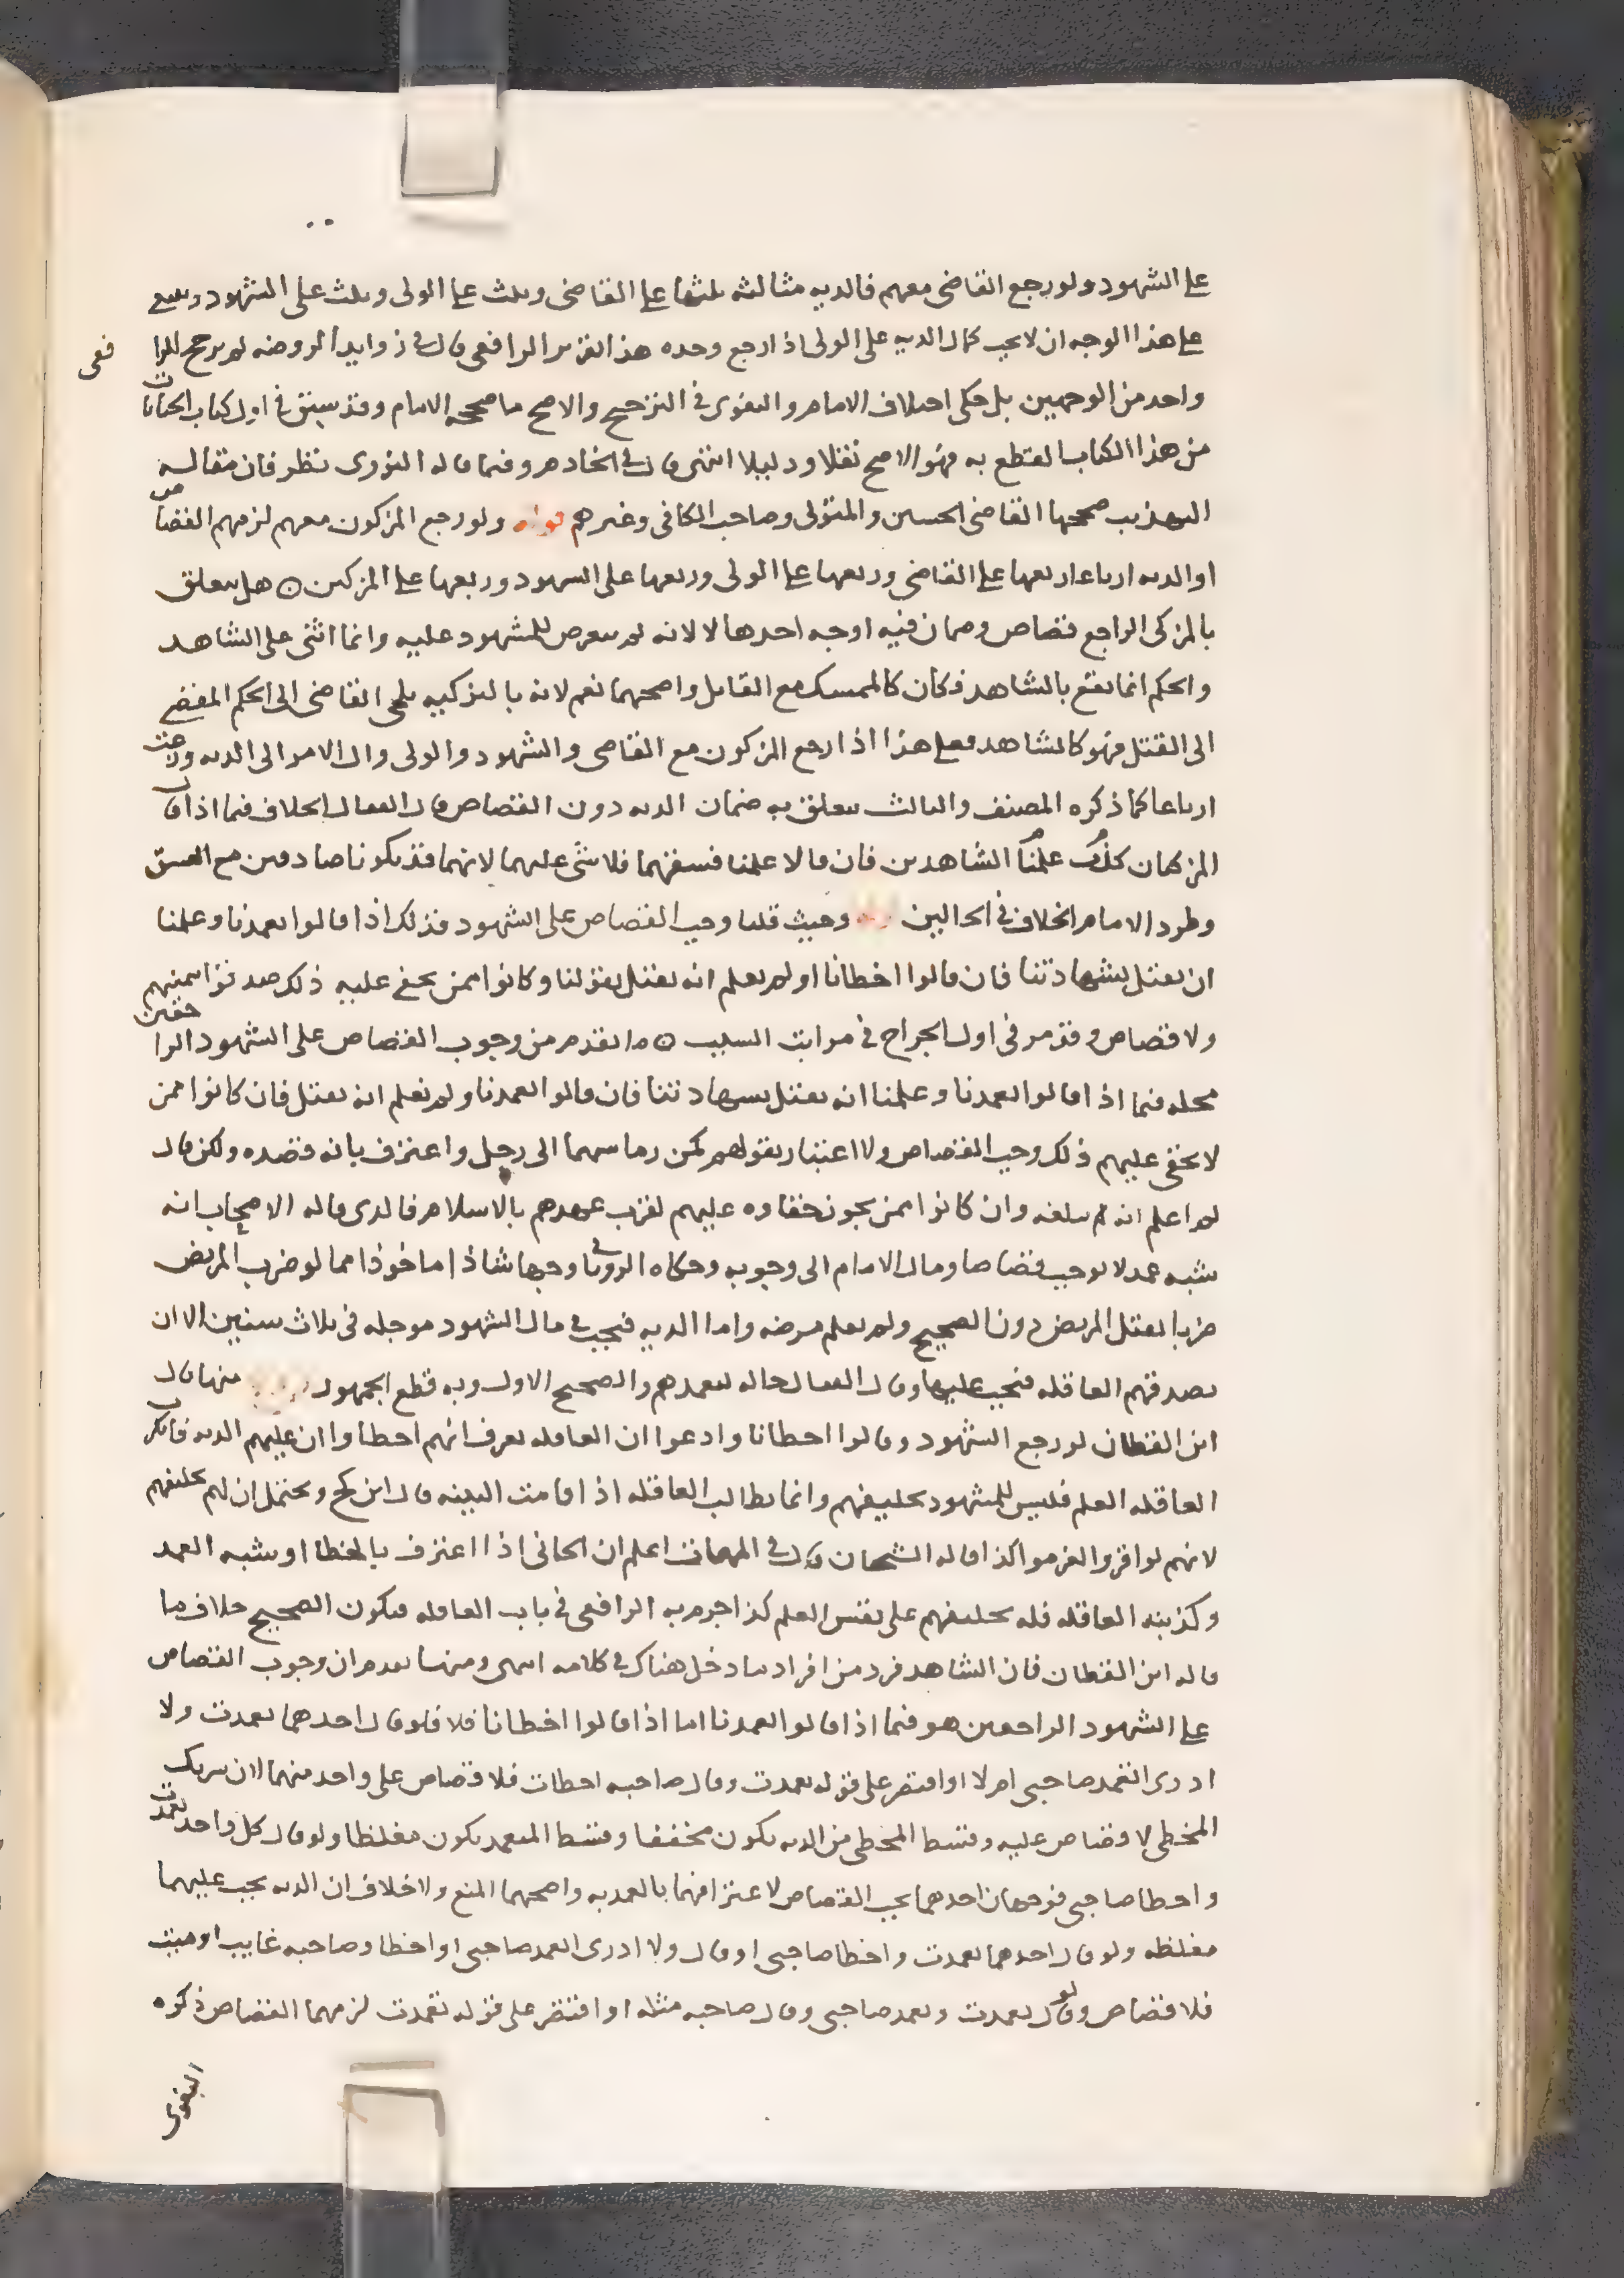 على الشهود ولو رجع القاضي معهم فالديه مثالثه ثلثها على القاضي وثلث على الولي وثلث على الشهود
على هذا الوجه ان لا يجب كمال الديه على الولي اذا رجع وحده هذا الرافعي قال في زوايد الروضه لم يرجح الرافعي
واحد من الوجهين بل حكي اختلاف الامام والبغوي في الترجيح والاصح ما صححه الامام وقد سبق في اول كتاب الجنايات
من هذا الكتاب القطع به فهو الاصح نقلا ودليلا انتهى قال في الخادم وفيما قاله النووي نظر فان مقاله
التهذيب صححها القاضي الحسين والمتولي وصاحب الكافي وغيرهم ولو رجع المزكون معهم لزمهم القصاص
او الديه ارباعا ربعها على القاضي وربعها على الولي وربعها على الشهود وربعها على المزكين هل يتعلق
بالمزكي الراجع قصاص وضمان فيه اوجه احدها لا لانه لم يتعرض للمشهود عليه وانما اثنى على الشاهد
والحكم انما يقع بالشاهد فكان كالممسك مع القاتل واصحهما نعم لانه بالتزكيه يلجي القاضي الى الحكم المفضي
الى القتل فهو كالشاهد فعلى هذا اذا رجع المزكون مع القاضي والشهود والولي وال الامر الى الديه وجبت
ارباعا كما ذكره المصنف والثالث يتعلق به ضمان الديه دون القصاص قال القفال الخلاف فيما اذا قال
المزكيان علمنا كذب الشاهدين فان قالا علمنا فسقهما فلا شي عليهما لانهما قد يكونا صادقين مع الفسق
وطرد الامام الخلاف في الحالين وحيث قلنا وجب القصاص على الشهود فذلك اذا قالوا تعمدنا وعلمنا
ان يقتل بشهادتنا فان قالوا اخطانا او لم نعلم انه يقتل بقولنا وكانوا ممن يخفى عليه ذلك صدقوا بيمينهم
ولا قصاص وقد مر في اول الجراح في مراتب السبب ما تقدم من وجوب القصاص على الشهود الراجعين
محله فيما اذا قالوا تعمدنا وعلمنا انه يقتل بشهادتنا فان قالوا تعمدنا ولم نعلم انه يقتل فان كانوا ممن
لا يخفى عليهم ذلك وجب القصاص ولا اعتبار بقولهم كمن رما سهما الى رجل واعترف بانه قصده ولكن قال
لم اعلم انه لم يبلغه وان كانوا ممن يجوز خفاوه عليهم لقرب عهدهم بالاسلام فالذي قاله الاصحاب انه
شبه عمد لا يوجب قصاصا ومال الامام الى وجوبه وحكاه الروياني وجها شاذا ماخوذا مما لو ضرب المريض
ضربا يقتل المريض دون الصحيح ولم يعلم مرضه واما الديه فتجب في مال الشهود موجله في ثلاث سنين الا ان
تصدقهم العاقله فتجب عليها وقال القفال حاله لتعمدهم والصحيح الاول وبه قطع الجمهور منها قال
ابن القطان لو رجع الشهود وقالوا اخطانا وادعوا ان العاقله تعرف انهم اخطاوا ان عليهم الديه فانكرت
العاقله العلم فليس للشهود تحليفهم وانما يطالب العاقله اذا قامت البينه قال ابن كج ويحتمل ان لهم تحليفهم
لانهم لو اقروا لغرموا كذا قاله الشيخان قال في المهمات اعلم ان الجاني اذا اعترف بالخطا او شبه العمد
وكذبته العاقله فله تحليفهم على نفي العلم كذا جزم به الرافعي في باب العاقله فيكون الصحيح خلاف ما
قاله ابن القطان فان الشاهد فرد من افراد ما دخل هناك في كلامه انتهى ومنها تقدم ان وجوب القصاص
على الشهود الراجعين هو فيما اذا قالوا تعمدنا اما اذا قالوا اخطانا فلا فلو قال احدهما تعمدت ولا
ادري اتعمد صاحبي ام لا او اقتصر على قوله تعمدت وقال صاحبه اخطات فلا قصاص على واحد منهما لان شريك
المخطي لا قصاص عليه وقسط المخطي من الديه يكون مخففا وقسط المتعمد يكون مغلظا ولو قال كل واحد تعمدت
واخطا صاحبي فوجهان احدهما يجب القصاص لاعترافهما بالعمديه واصحهما المنع ولا خلاف ان الديه تجب عليهما
مغلظه ولو قال احدهما تعمدت واخطا صاحبي او قال ولا ادري اتعمد صاحبي او اخطا وصاحبه غايب او ميت
فلا قصاص ولو قال تعمدت وتعمد صاحبي وقال صاحبه مثله او اقتصر على قوله تعمدت لزمهما القصاص ذكره
البغوي